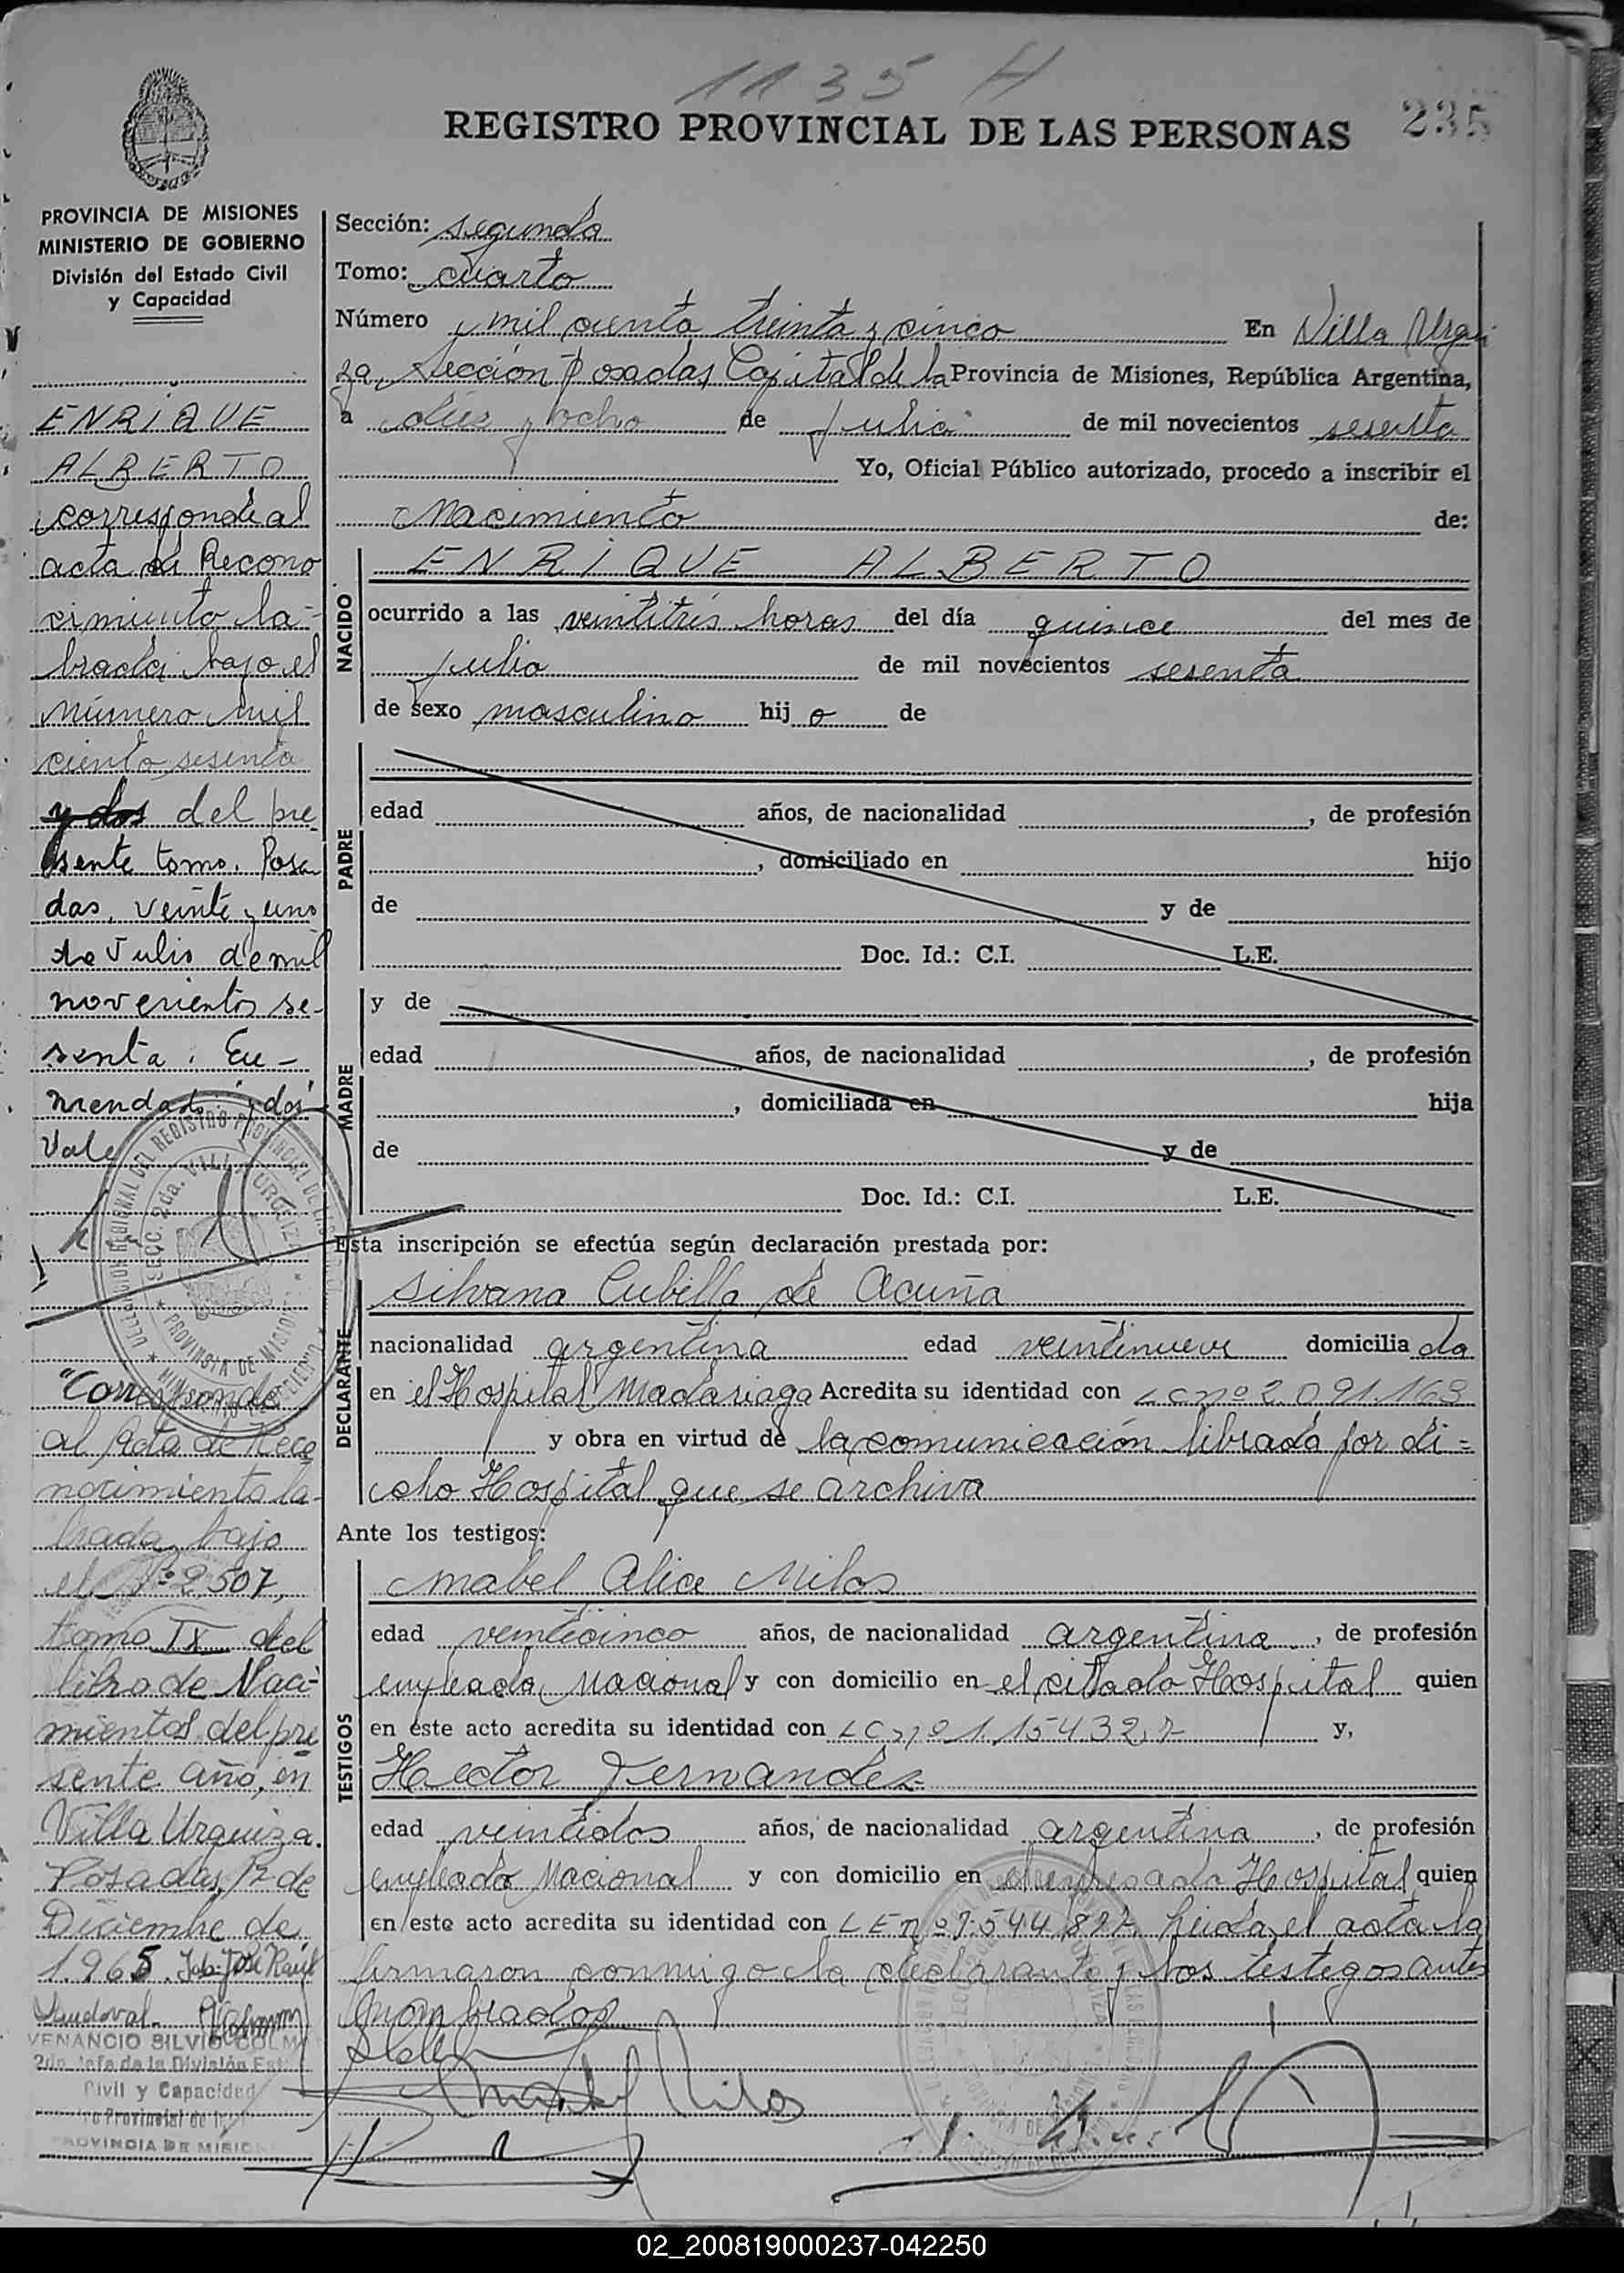 1135 H
REGISTRO PROVINCIAL DE LAS PERSONAS
235
PROVINCIA DE MISIONES
MINISTERIO DE GOBIERNO
División del Estado Civil
y Capacidad
ENRIQUE
ALBERTO
corresponde al
acta de Recono
cimiento la-
brada bajo el
número mil
ciento sesenta
y dos del pre
sente tomo. Posa
das, veinte y uno
de Julio de mil
novecientos se-
senta. En-
mendado: y dos
Vale
"Corresponde
al Acta de Reco
nocimiento la-
brada bajo
el Nº 2507,
tomo IX del
libro de Naci-
mientos del pre
sente año, en
Villa Urquiza.
Posadas, 12 de
Diciembre de
1.965. José Raúl
Sandoval.
VENANCIO SILVIO COLMA
2do. Jefe de la División Est
Civil y Capacidad
Provincial de
PROVINCIA DE MISIO
Sección: segunda
Tomo: cuarto
Número mil ciento treinta y cinco En Villa Urqui
za, Sección Posadas Capital de la Provincia de Misiones, República Argentina,
a diez y ocho de julio de mil novecientos sesenta
Yo, Oficial Público autorizado, procedo a inscribir el
Nacimiento de:
NACIDO
ENRIQUE ALBERTO
ocurrido a las veintitrés horas del día quince del mes de
julio de mil novecientos sesenta
de sexo masculino hij o de
PADRE
edad años, de nacionalidad , de profesión
, domiciliado en hijo
de y de
Doc. Id.: C.I. L.E.
MADRE
y de
edad años, de nacionalidad , de profesión
, domiciliada en hija
de y de
Doc. Id.: C.I. L.E.
Esta inscripción se efectúa según declaración prestada por:
DECLARANTE
Silvana Cubilla de Acuña
nacionalidad argentina edad veintinueve domicilia da
en el Hospital Madariaga Acredita su identidad con LC nº 2.091.163
y obra en virtud de la comunicación librada por di=
cho Hospital que se archiva
Ante los testigos:
TESTIGOS
Mabel Alice Milos
edad veinticinco años, de nacionalidad argentina , de profesión
empleada Nacional y con domicilio en el citado Hospital quien
en este acto acredita su identidad con LC nº 1.154.327 y,
Hector Fernandez
edad veintidos años, de nacionalidad argentina , de profesión
empleado Nacional y con domicilio en el expresado Hospital quien
en este acto acredita su identidad con LE nº 7.544.827 Leida el acta la
firmaron conmigo la declarante y los testigos antes
nombrados
Mabel Milos
02_200819000237-042250